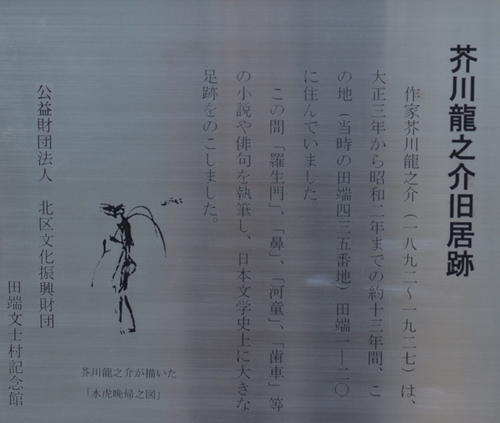 芥川龍之介旧居跡
作家芥川龍之介(一八九二〜一九二七)は、
大正三年から昭和二年までの約十三年間、こ
の地(当時の田端四三五番地)田端一―二〇
に住んでいました
この間「羅生門」、「鼻」、「河童」、「歯車」等
の小説や俳句を執筆し、日本文学史上に大きな
足跡をのこしました。
芥川龍之介が描いた
「水虎晩帰之図」
公益財団法人 北区文化振興財団
田端文士村記念館